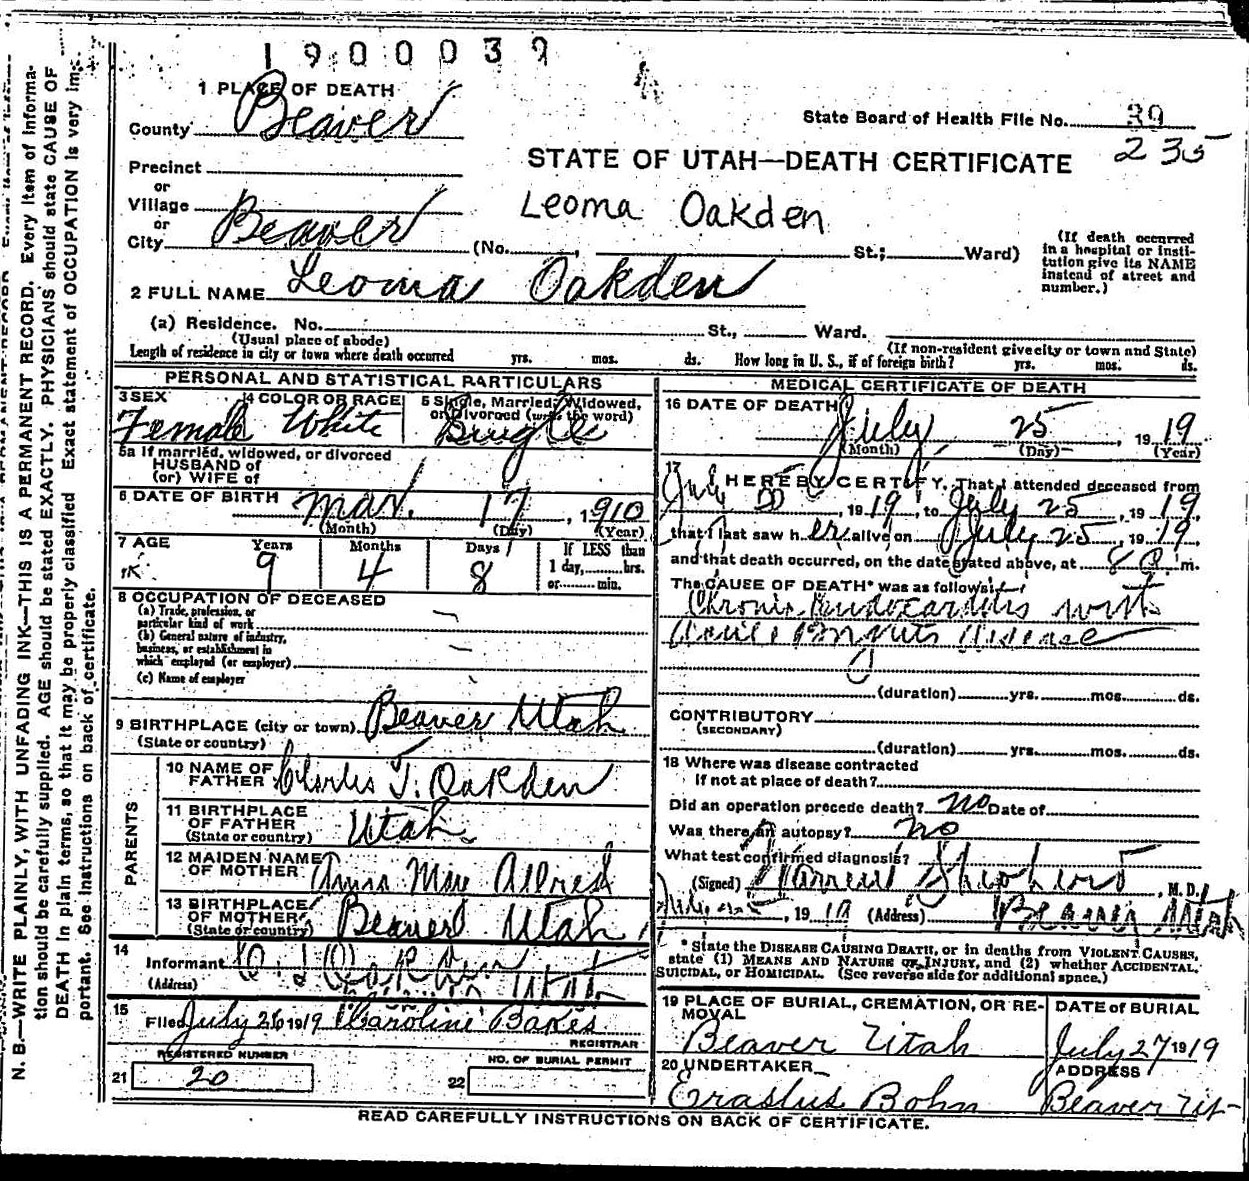 1900039
1 PLACE OF DEATH
County Beaver
State Board of Health File No. 39
235
STATE OF UTAH—DEATH CERTIFICATE
Precinct
or
Village
or
City Beaver (No. , St.; Ward)
Leoma Oakden
(If death occurred in a hospital or insti-
tution give its NAME
instead of street and
number.)
2 FULL NAME Leoma Oakden
(a) Residence. No. St., Ward.
(Usual place of abode) (If non-resident give city or town and State)
Length of residence in city or town where death occurred yrs. mos. ds. How long in U. S., if of foreign birth? yrs. mos. ds.
PERSONAL AND STATISTICAL PARTICULARS
3 SEX 4 COLOR OR RACE 5 Single, Married, Widowed,
or Divorced (write the word)
Female White Single
5a If married, widowed, or divorced
HUSBAND of
(or) WIFE of
6 DATE OF BIRTH Mar. 17, 1910
(Month) (Day) (Year)
7 AGE Years Months Days If LESS than
1 day, hrs.
or min.
9 4 8
8 OCCUPATION OF DECEASED
(a) Trade, profession, or
particular kind of work
(b) General nature of industry,
business, or establishment in
which employed (or employer)
(c) Name of employer
9 BIRTHPLACE (city or town) Beaver Utah
(State or country)
PARENTS
10 NAME OF
FATHER Charles T. Oakden
11 BIRTHPLACE
OF FATHER
(State or country) Utah
12 MAIDEN NAME
OF MOTHER Anna May Allred
13 BIRTHPLACE
OF MOTHER
(State or country) Beaver Utah
14
Informant Oakden
(Address) Utah
15
Filed July 26 1919 Caroline Bakes
REGISTRAR
REGISTERED NUMBER NO. OF BURIAL PERMIT
21 20 22
MEDICAL CERTIFICATE OF DEATH
16 DATE OF DEATH
July 25, 1919
(Month) (Day) (Year)
17 I HEREBY CERTIFY, That I attended deceased from
1919, to July 25, 1919
that I last saw her alive on July 25, 1919
and that death occurred, on the date stated above, at 8 a. m.
The CAUSE OF DEATH* was as follows:
Chronic Endocarditis with
Brights Disease
(duration) yrs. mos. ds.
CONTRIBUTORY
(SECONDARY)
(duration) yrs. mos. ds.
18 Where was disease contracted
If not at place of death?
Did an operation precede death? No Date of
Was there an autopsy? No
What test confirmed diagnosis?
(Signed) Warren Shepherd, M. D.
, 1919 (Address) Beaver Utah
* State the DISEASE CAUSING DEATH, or in deaths from VIOLENT CAUSES,
state (1) MEANS AND NATURE OF INJURY, and (2) whether ACCIDENTAL,
SUICIDAL, or HOMICIDAL. (See reverse side for additional space.)
19 PLACE OF BURIAL, CREMATION, OR RE-
MOVAL
Beaver Utah
DATE of BURIAL
July 27 1919
20 UNDERTAKER
Erastus Bohn
ADDRESS
Beaver Ut-
READ CAREFULLY INSTRUCTIONS ON BACK OF CERTIFICATE.
N. B.—WRITE PLAINLY, WITH UNFADING INK—THIS IS A PERMANENT RECORD. Every item of informa-
tion should be carefully supplied. AGE should be stated EXACTLY. PHYSICIANS should state CAUSE OF
DEATH in plain terms, so that it may be properly classified Exact statement of OCCUPATION is very im-
portant. See instructions on back of certificate.